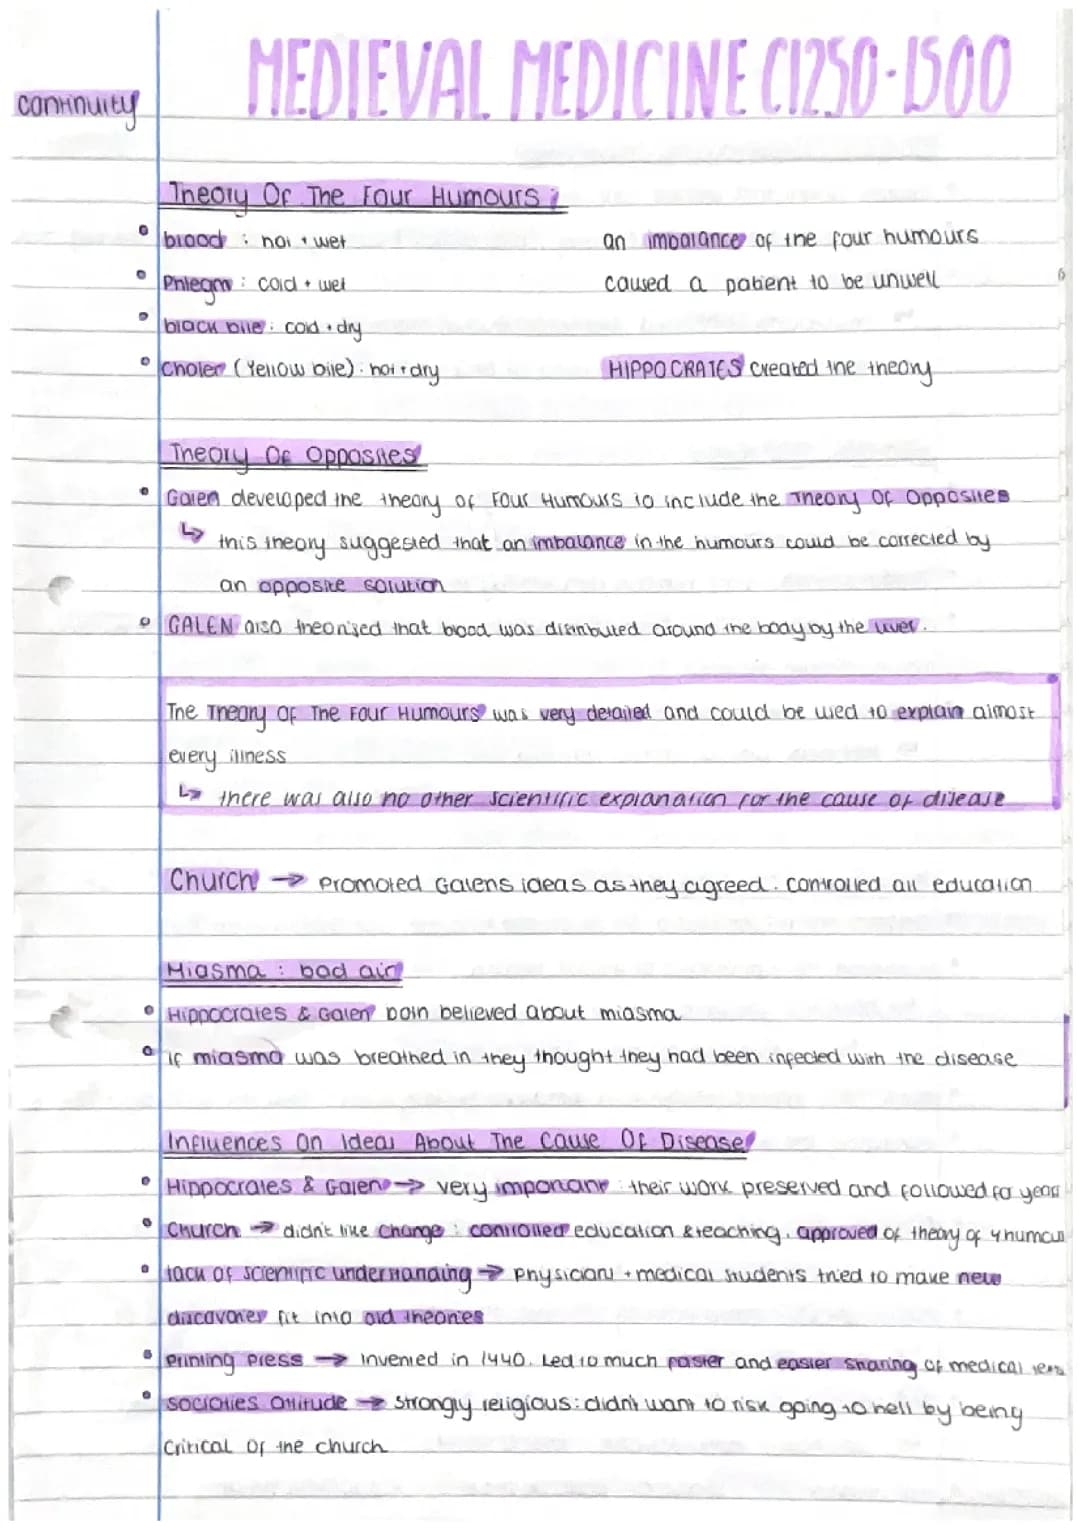 MEDIEVAL MEDICINE C1250-1500
continuity
Theory Of The Four Humours:
blood : hot + wet
an imbalance of the four humours
Phlegm : cold + wet
caused a patient to be unwell
black bile : cold + dry
Choler (Yellow bile) : hot + dry
HIPPOCRATES created the theory
Theory Of Opposites
Galen developed the theory of Four Humours to include the Theory Of Opposites
↳ this theory suggested that an imbalance in the humours could be corrected by
an opposite solution
GALEN also theorised that blood was distributed around the body by the liver.
The Theory Of The Four Humours was very detailed and could be used to explain almost
every illness
↳ there was also no other scientific explanation for the cause of disease
Church → Promoted Galens ideas as they agreed. controlled all education
Miasma : bad air
Hippocrates & Galen both believed about miasma
if miasma was breathed in they thought they had been infected with the disease
Influences On Ideas About The Cause Of Disease
Hippocrates & Galen → very important : their work preserved and followed for years
Church → didn't like change : controlled education & teaching. approved of theory of 4 humours
lack of scientific understanding → physicians + medical students tried to make new
discoveries fit into old theories
Printing press → invented in 1440. Led to much faster and easier sharing of medical texts
societies attitude → strongly religious: didn't want to risk going to hell by being
critical of the church